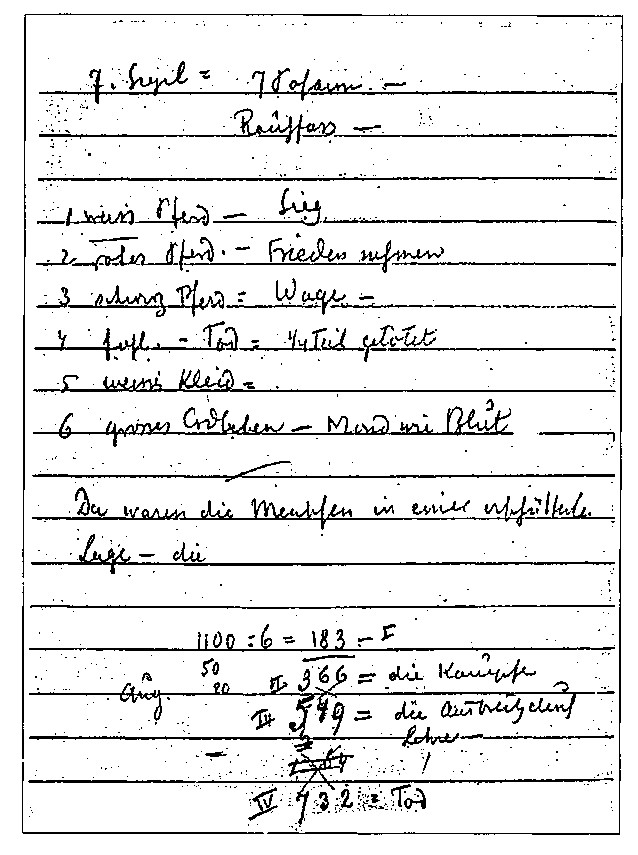 7. Siegel = 7 Posaun. –
Rauchfass –
1 weiss Pferd – Sieg
2. rotes Pferd. – Frieden nehmen
3 schwarz Pferd = Wage –
4 fahl. – Tod = 1/4 Teil getötet
5 weiss Kleid =
6 grosses Erdbeben – Mond wie Blut
Da waren die Menschen in einer
Lage – die
1100 : 6 = 183 – I
50
20
II 366 = die Kämpfe
Aug.
III 549 = die
Lehre –
–
IV 732 = Tod